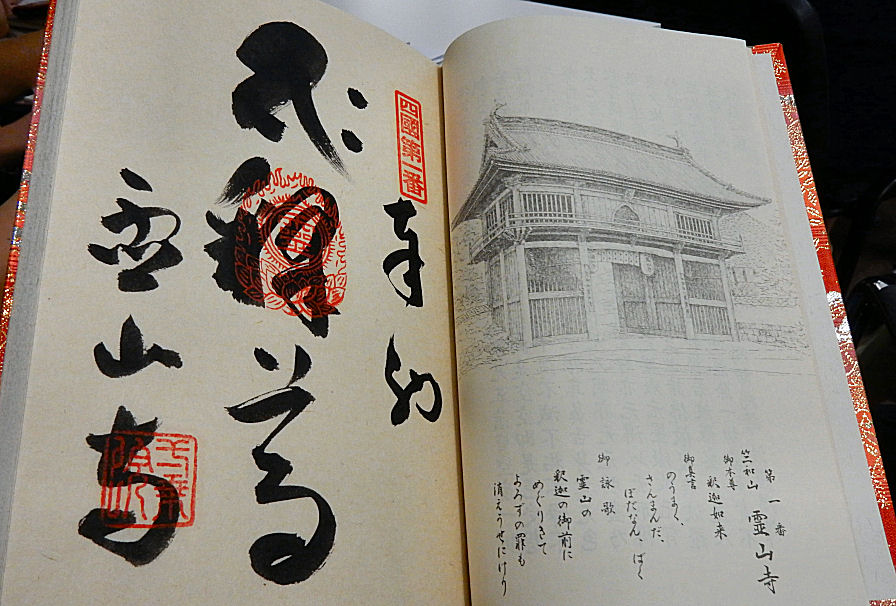 第一番 霊山寺
竺和山
御本尊
釈迦如来
御真言
のうまく、
さんまんだ、
ぼだなん、ばく
御詠歌
霊山の
釈迦の御前に
めぐりきて
よろずの罪も
消えうせにけり
四國第一番
奉納
尊
霊山寺